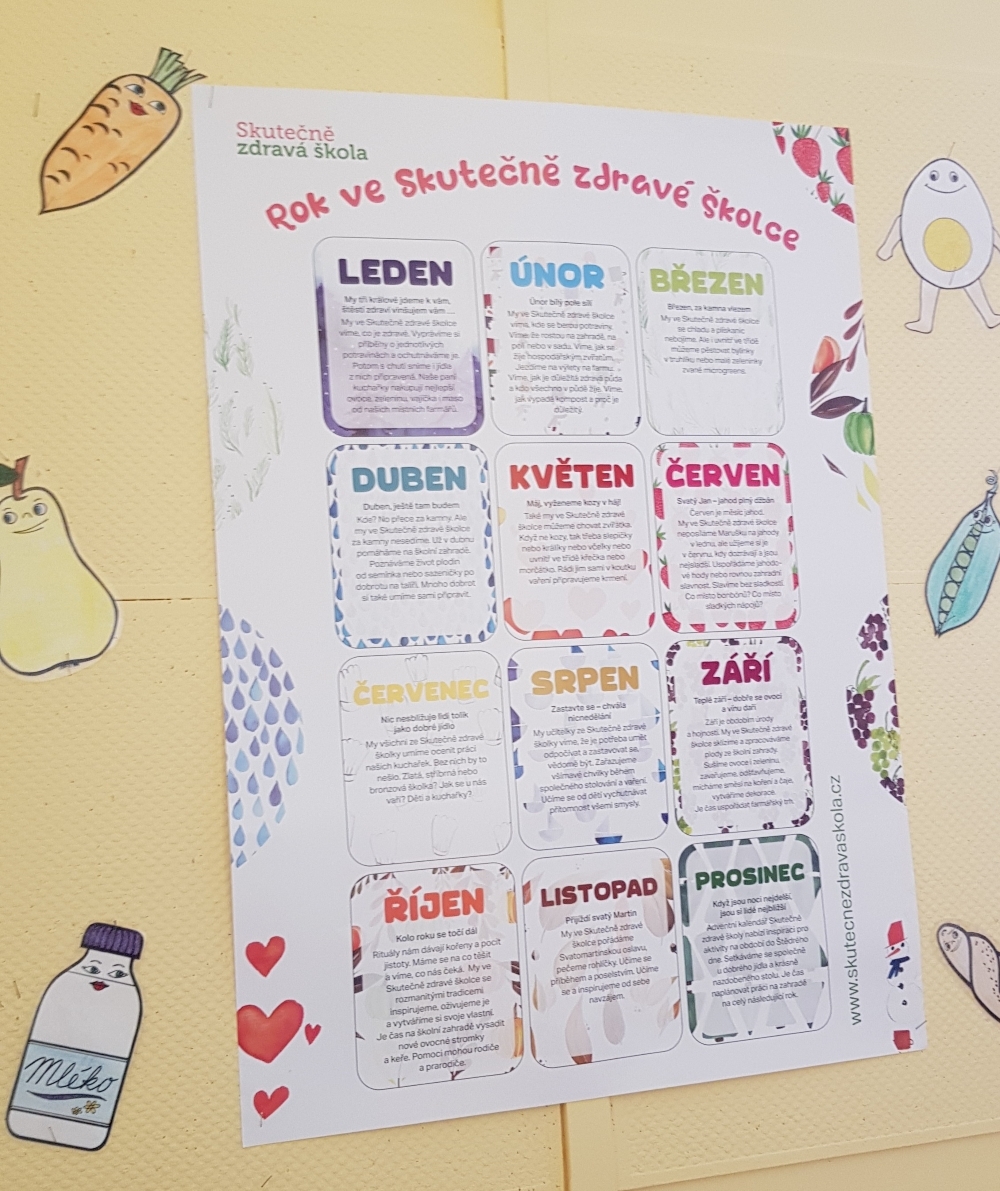 Skutečně
zdravá škola
Rok ve Skutečně zdravé Školce
LEDEN
My tři králové jdeme k vám,
štěstí zdraví vinšujem vám ....
My ve Skutečně zdravé školce
víme, co je zdravé. Vyprávíme si
příběhy o jednotlivých
potravinách a ochutnáváme je.
Potom s chutí sníme i jídla
z nich připravená. Naše paní
kuchařky nakupují nejlepší
ovoce, zeleninu, vajíčka i maso
od našich místních farmářů.
ÚNOR
Únor bílý pole sílí
My ve Skutečně zdravé školce
víme, kde se berou potraviny.
Víme, že rostou na zahradě, na
poli nebo v sadu. Víme, jak se
žije hospodářským zvířatům.
Jezdíme na výlety na farmu.
Víme, jak je důležitá zdravá půda
a kdo všechno v půdě žije. Víme,
jak vypadá kompost a proč je
důležitý.
BŘEZEN
Březen, za kamna vlezem
My ve Skutečně zdravé školce
se chladu a plískanic
nebojíme. Ale i uvnitř ve třídě
můžeme pěstovat bylinky
v truhlíku nebo malé zeleninky
zvané microgreens.
DUBEN
Duben, ještě tam budem
Kde? No přece za kamny. Ale
my ve Skutečně zdravé školce
za kamny nesedíme. Už v dubnu
pomáháme na školní zahradě.
Poznáváme život plodin
od semínka nebo sazeničky po
dobrotu na talíři. Mnoho dobrot
si také umíme sami připravit.
KVĚTEN
Máj, vyženeme kozy v háj!
Také my ve Skutečně zdravé
školce můžeme chovat zvířátka.
Když ne kozy, tak třeba slepičky
nebo králíky nebo včelky nebo
uvnitř ve třídě křečka nebo
morčátko. Rádi jim sami v koutku
vaření připravujeme krmení.
ČERVEN
Svatý Jan – jahod plný džbán
Červen je měsíc jahod.
My ve Skutečně zdravé školce
neposíláme Marušku na jahody
v lednu, ale užijeme si je
v červnu, kdy dozrávají a jsou
nejsladší. Uspořádáme jahodo-
vé hody nebo rovnou zahradní
slavnost. Slavíme bez sladkostí.
Co místo bonbónů? Co místo
sladkých nápojů?
ČERVENEC
Nic nesbližuje lidi tolik
jako dobré jídlo
My všichni ze Skutečně zdravé
školky umíme ocenit práci
našich kuchařek. Bez nich by to
nešlo. Zlatá, stříbrná nebo
bronzová školka? Jak se u nás
vaří? Děti a kuchařky?
SRPEN
Zastavte se – chvála
nicnedělání
My učitelky ze Skutečně zdravé
školky víme, že je potřeba umět
odpočívat a zastavovat se,
vědomě být. Zařazujeme
všímavé chvilky během
společného stolování a vaření.
Učíme se od dětí vychutnávat
přítomnost všemi smysly.
ZÁŘÍ
Teplé září – dobře se ovoci
a vínu daří
Září je obdobím úrody
a hojnosti. My ve Skutečně zdravé
školce sklízíme a zpracováváme
plody ze školní zahrady.
Sušíme ovoce i zeleninu,
zavařujeme, odšťavňujeme,
mícháme směsi na koření a čaje,
vytváříme dekorace.
Je čas uspořádat farmářský trh.
ŘÍJEN
Kolo roku se točí dál
Rituály nám dávají kořeny a pocit
jistoty. Máme se na co těšit
a víme, co nás čeká. My ve
Skutečně zdravé školce se
rozmanitými tradicemi
inspirujeme, oživujeme je
a vytváříme si svoje vlastní.
Je čas na školní zahradě vysadit
nové ovocné stromky
a keře. Pomoci mohou rodiče
a prarodiče.
LISTOPAD
Přijíždí svatý Martin
My ve Skutečně zdravé
školce pořádáme
Svatomartinskou oslavu,
pečeme rohlíčky. Učíme se
příběhem a poselstvím. Učíme
se a inspirujeme od sebe
navzájem.
PROSINEC
Když jsou noci nejdelší,
jsou si lidé nejbližší
Adventní kalendář Skutečně
zdravé školy nabízí inspiraci pro
aktivity na období do Štědrého
dne. Setkáváme se společně
u dobrého jídla a krásně
nazdobeného stolu. Je čas
naplánovat práci na zahradě
na celý následující rok.
www.skutecnezdravaskola.cz
Mléko